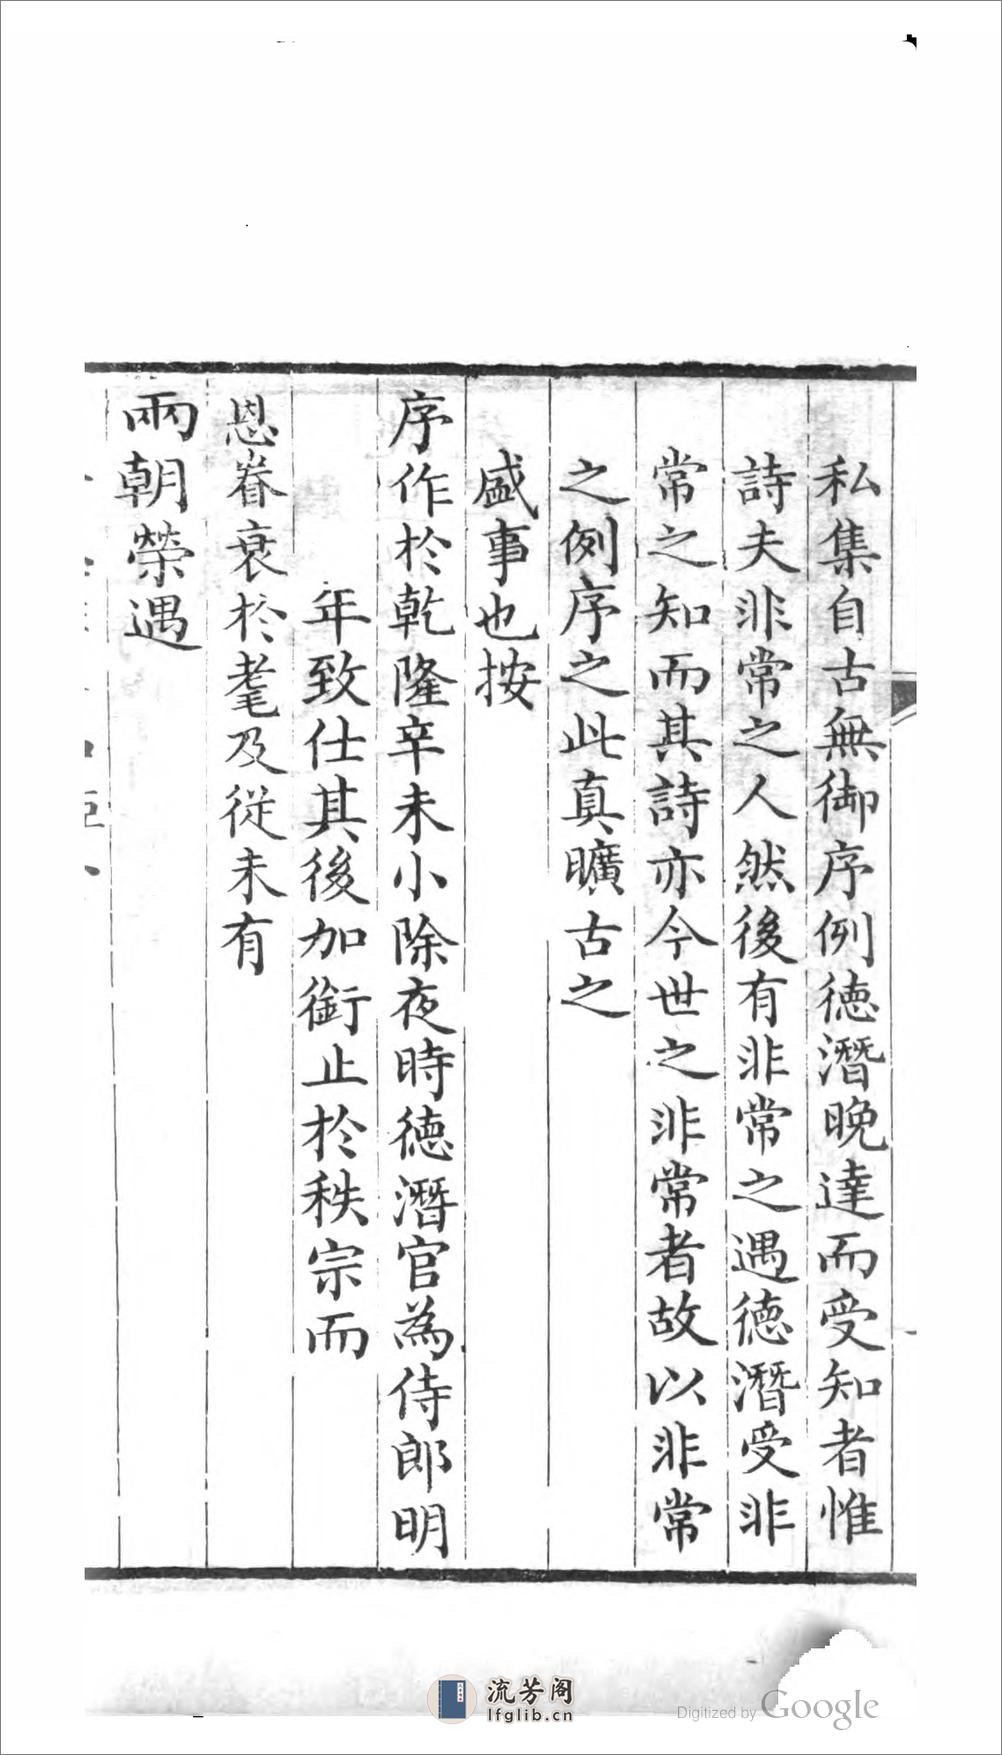 私集自古無御序例徳潛晚達而受知者惟
詩夫非常之人然後有非常之遇徳潛受非
常之知而其詩亦今世之非常者故以非常
之例序之此真曠古之
盛事也按
序作於乾隆辛未小除夜時徳潛官為侍郎明
年致仕其後加銜止於秩宗而
恩眷衰於耄及從未有
兩朝榮遇
流芳阁
lfglib.cn
Digitized by Google